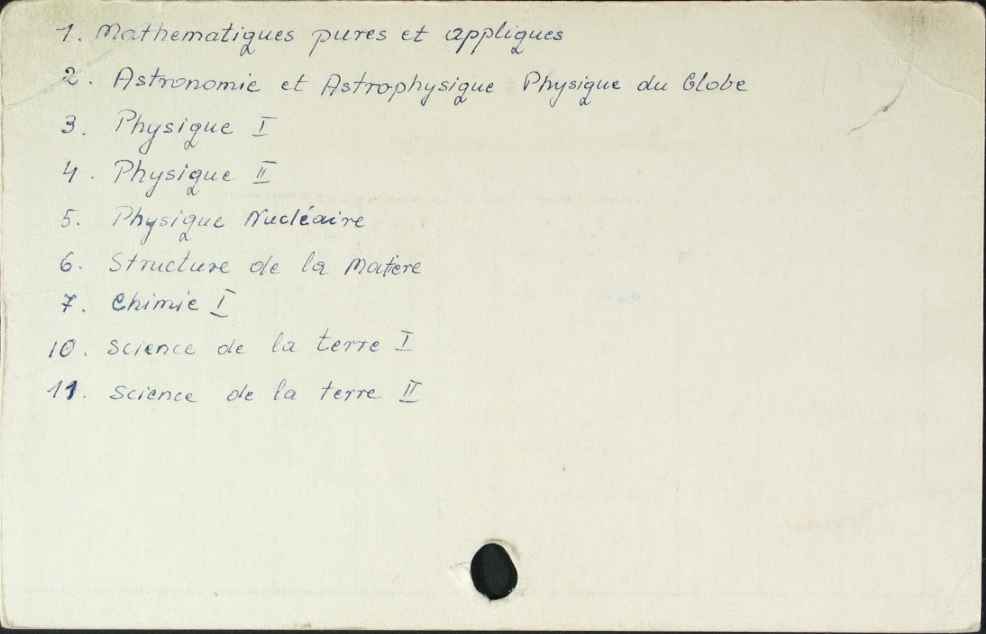 1. Mathematiques pures et appliques
2. Astronomie et Astrophysique Physique du Globe
3. Physique I
4. Physique II
5. Physique Nucléaire
6. Structure de la Matere
7. Chimie I
10. Science de la terre I
11. Science de la terre II